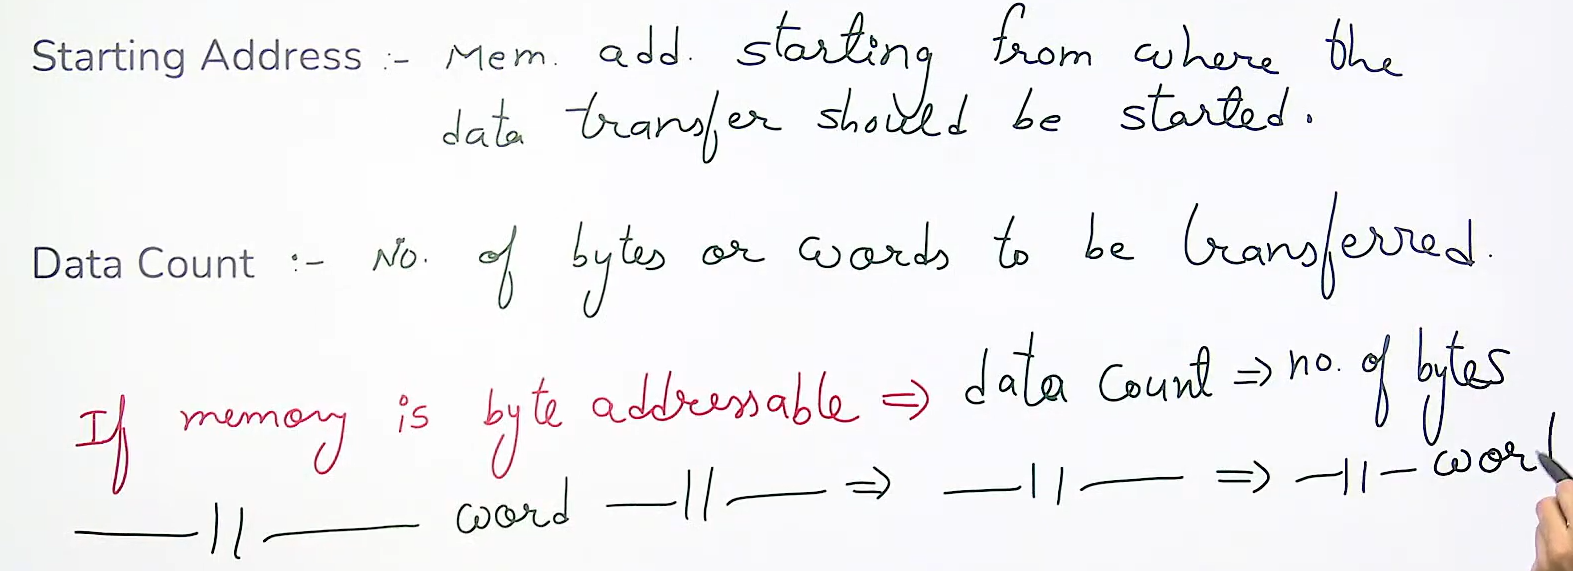 Starting Address :- Mem. add. starting from where the
data transfer should be started.
Data Count :- No. of bytes or words to be transferred.
If memory is byte addressable ⇒ data count ⇒ no. of bytes
—||— word —||— ⇒ —||— ⇒ —||— word